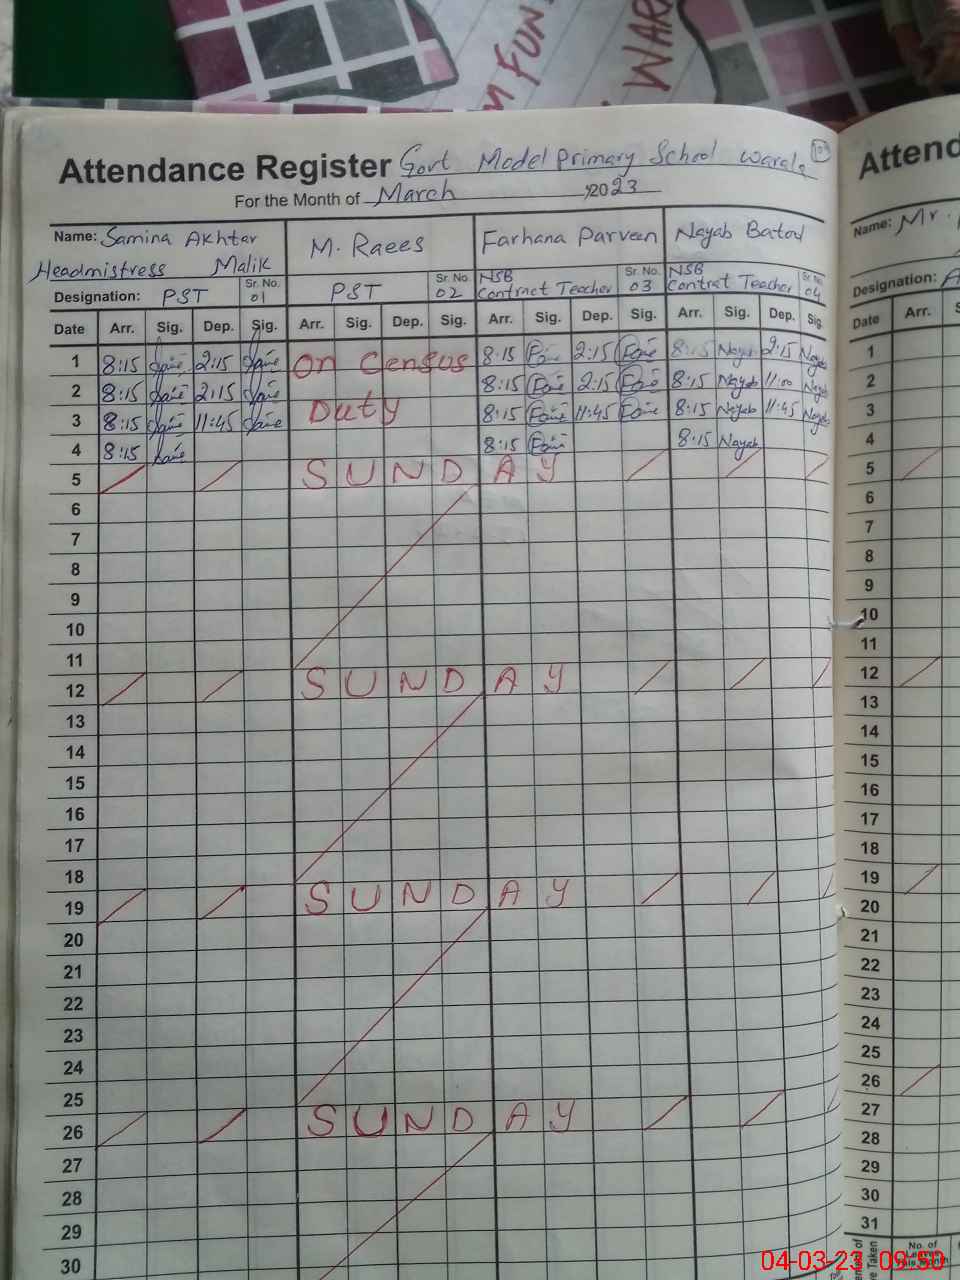 M FUN
WAR
Attendance Register Govt Model Primary School Warala
For the Month of March ,2023
Name: Samina Akhtar M. Raees Farhana Parveen Nayab Batool
Headmistress Malik
Designation: PST Sr. No. 01 PST Sr. No. 02 NSB Contract Teacher Sr. No. 03 NSB Contract Teacher Sr. No. 04
Date Arr. Sig. Dep. Sig. Arr. Sig. Dep. Sig. Arr. Sig. Dep. Sig. Arr. Sig. Dep. Sig.
1 8:15 2:15 On Census 8:15 2:15 8:15 Nayab 2:15 Nayab
2 8:15 2:15 8:15 2:15 8:15 Nayab 11:00 Nayab
3 8:15 11:45 Duty 8:15 11:45 8:15 Nayab 11:45 Nayab
4 8:15 8:15 8:15 Nayab
5 SUNDAY
6
7
8
9
10
11
12 SUNDAY
13
14
15
16
17
18
19 SUNDAY
20
21
22
23
24
25
26 SUNDAY
27
28
29
30
Attend
Name: Mr.
Designation: A
Date Arr. S
1
2
3
4
5
6
7
8
9
10
11
12
13
14
15
16
17
18
19
20
21
22
23
24
25
26
27
28
29
30
31
No. of
Leaves
This Month
04-03-23 09:50